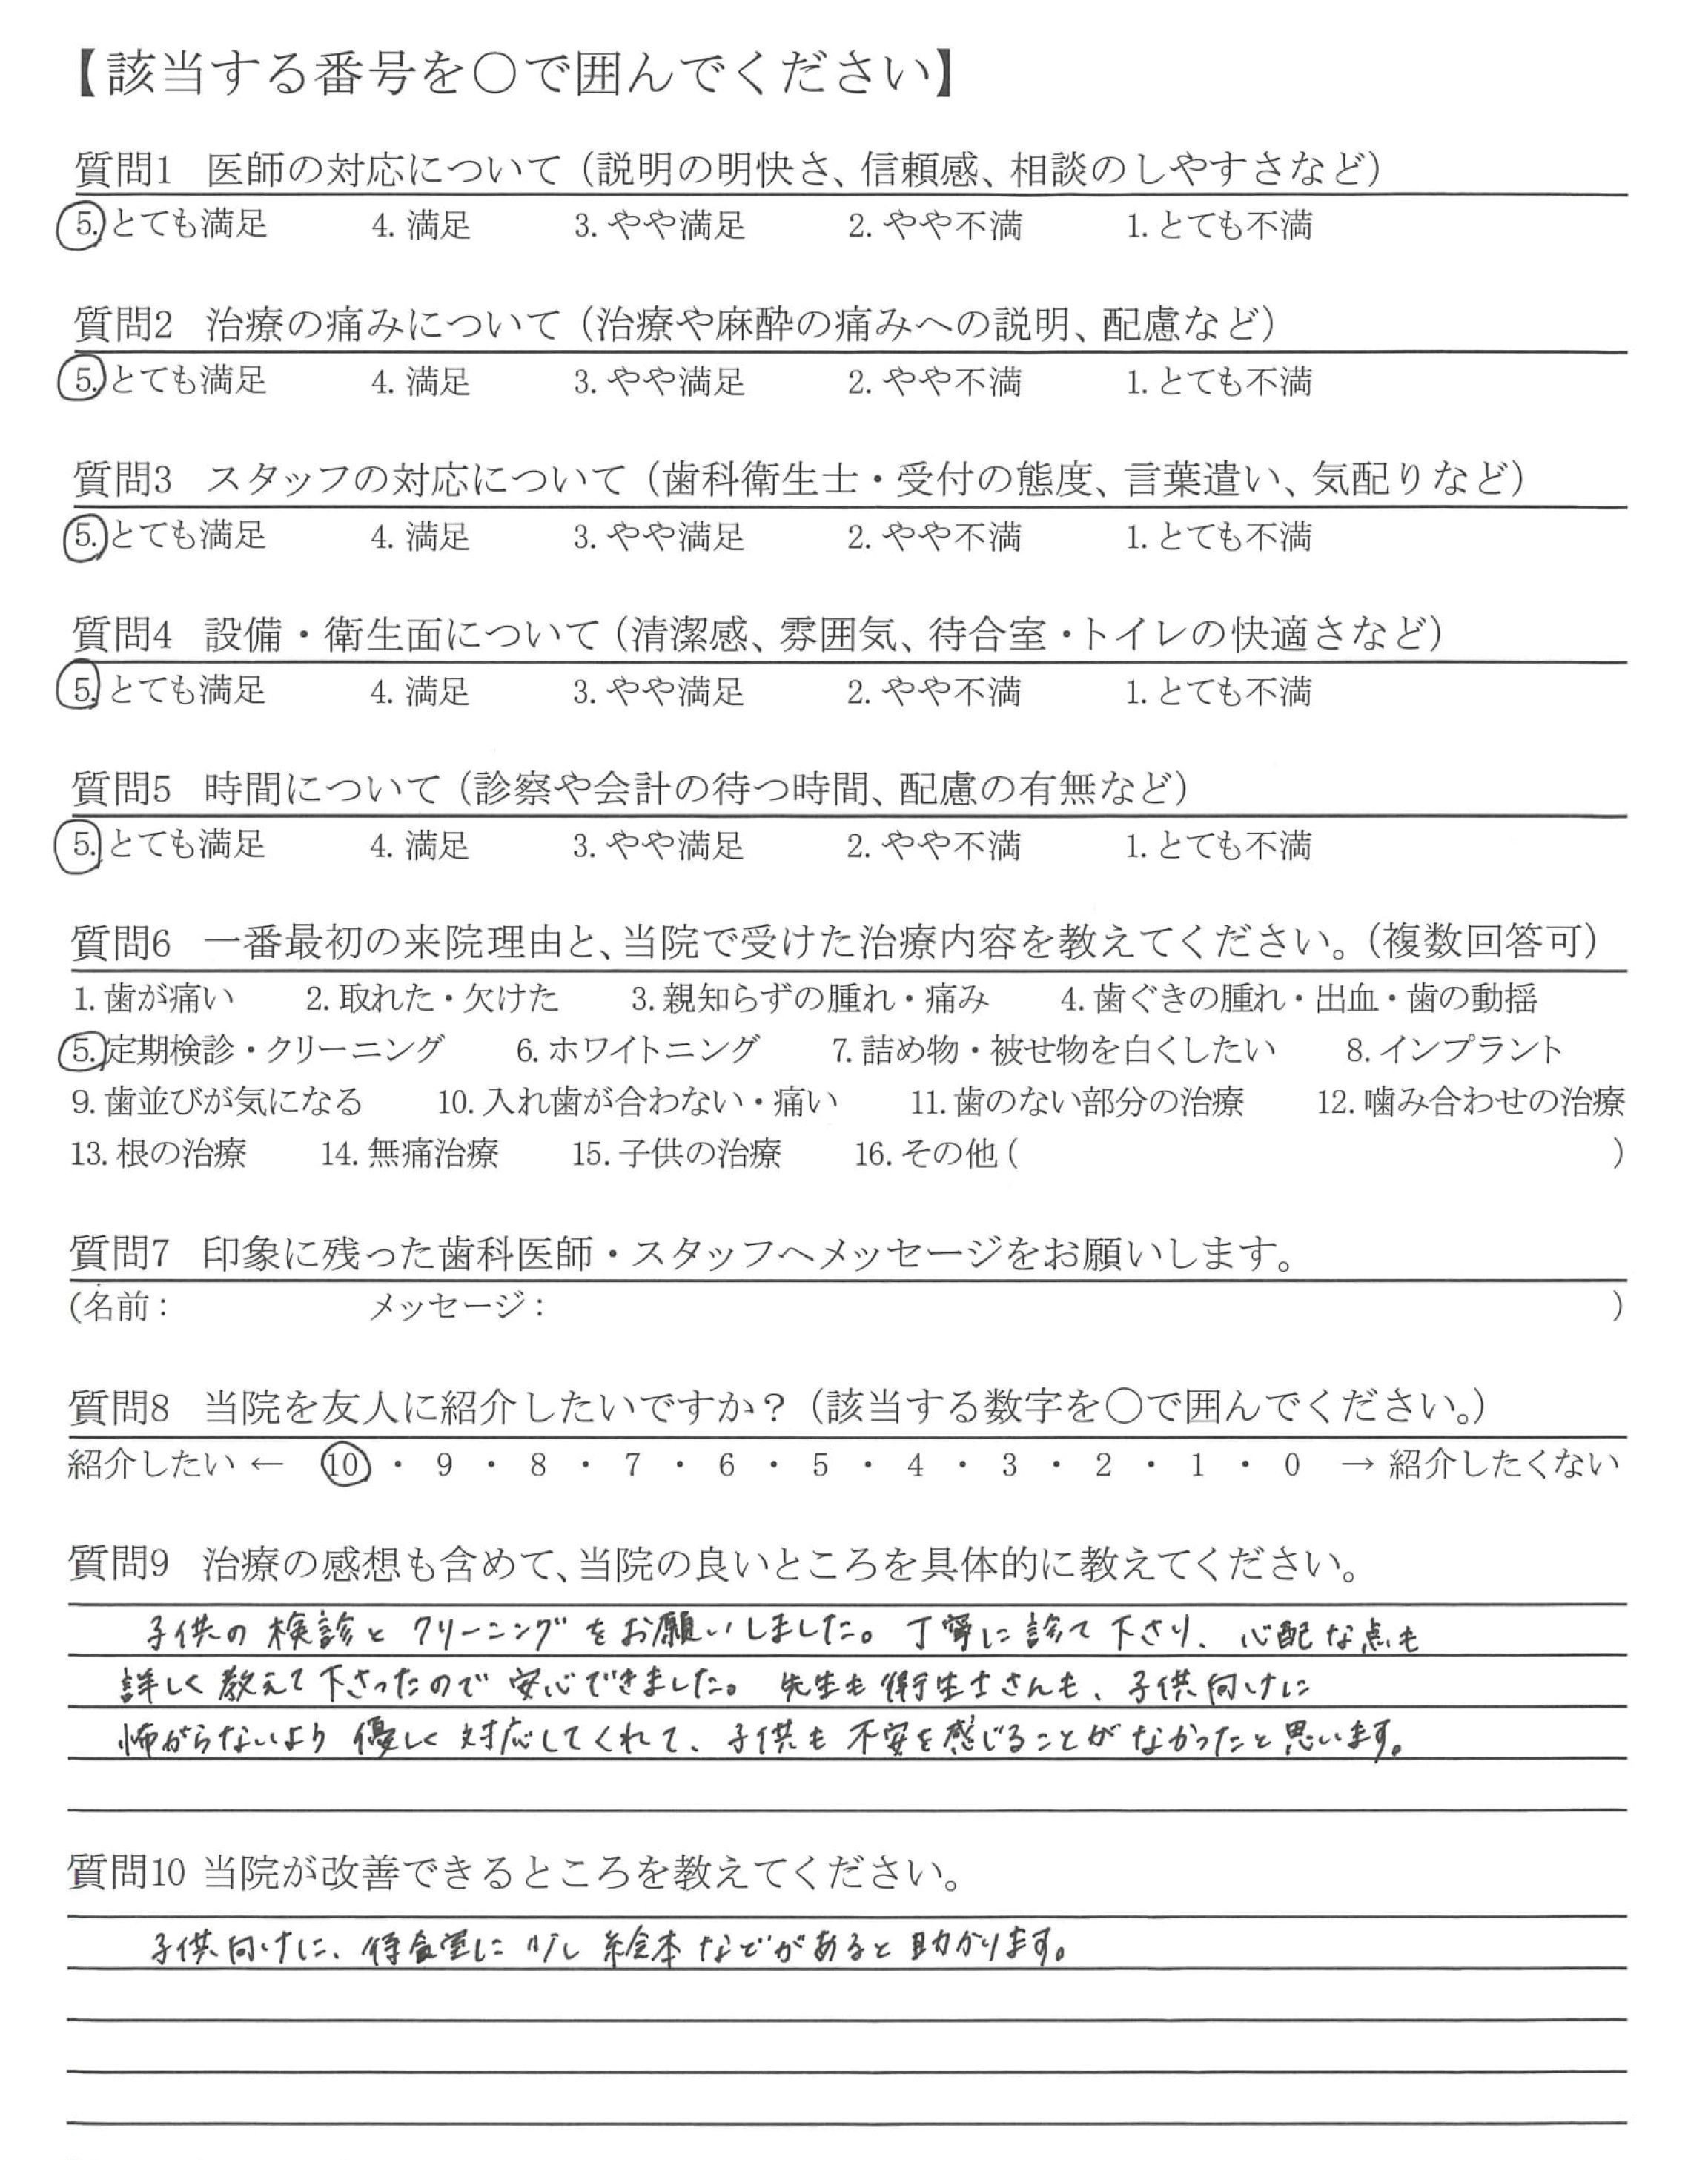 【該当する番号を〇で囲んでください】
質問1 医師の対応について（説明の明快さ、信頼感、相談のしやすさなど）
5. とても満足 4. 満足 3. やや満足 2. やや不満 1. とても不満
質問2 治療の痛みについて（治療や麻酔の痛みへの説明、配慮など）
5. とても満足 4. 満足 3. やや満足 2. やや不満 1. とても不満
質問3 スタッフの対応について（歯科衛生士・受付の態度、言葉遣い、気配りなど）
5. とても満足 4. 満足 3. やや満足 2. やや不満 1. とても不満
質問4 設備・衛生面について（清潔感、雰囲気、待合室・トイレの快適さなど）
5. とても満足 4. 満足 3. やや満足 2. やや不満 1. とても不満
質問5 時間について（診察や会計の待つ時間、配慮の有無など）
5. とても満足 4. 満足 3. やや満足 2. やや不満 1. とても不満
質問6 一番最初の来院理由と、当院で受けた治療内容を教えてください。（複数回答可）
1. 歯が痛い 2. 取れた・欠けた 3. 親知らずの腫れ・痛み 4. 歯ぐきの腫れ・出血・歯の動揺
5. 定期検診・クリーニング 6. ホワイトニング 7. 詰め物・被せ物を白くしたい 8. インプラント
9. 歯並びが気になる 10. 入れ歯が合わない・痛い 11. 歯のない部分の治療 12. 噛み合わせの治療
13. 根の治療 14. 無痛治療 15. 子供の治療 16. その他 ( )
質問7 印象に残った歯科医師・スタッフへメッセージをお願いします。
(名前： メッセージ： )
質問8 当院を友人に紹介したいですか？（該当する数字を〇で囲んでください。）
紹介したい ← 10 ・ 9 ・ 8 ・ 7 ・ 6 ・ 5 ・ 4 ・ 3 ・ 2 ・ 1 ・ 0 → 紹介したくない
質問9 治療の感想も含めて、当院の良いところを具体的に教えてください。
子供の検診とクリーニングをお願いしました。丁寧に診て下さり、心配な点も
詳しく教えて下さったので安心できました。先生も衛生士さんも、子供向けに
怖がらないよう優しく対応してくれて、子供も不安を感じることがなかったと思います。
質問10 当院が改善できるところを教えてください。
子供向けに、待合室に少し絵本などがあると助かります。